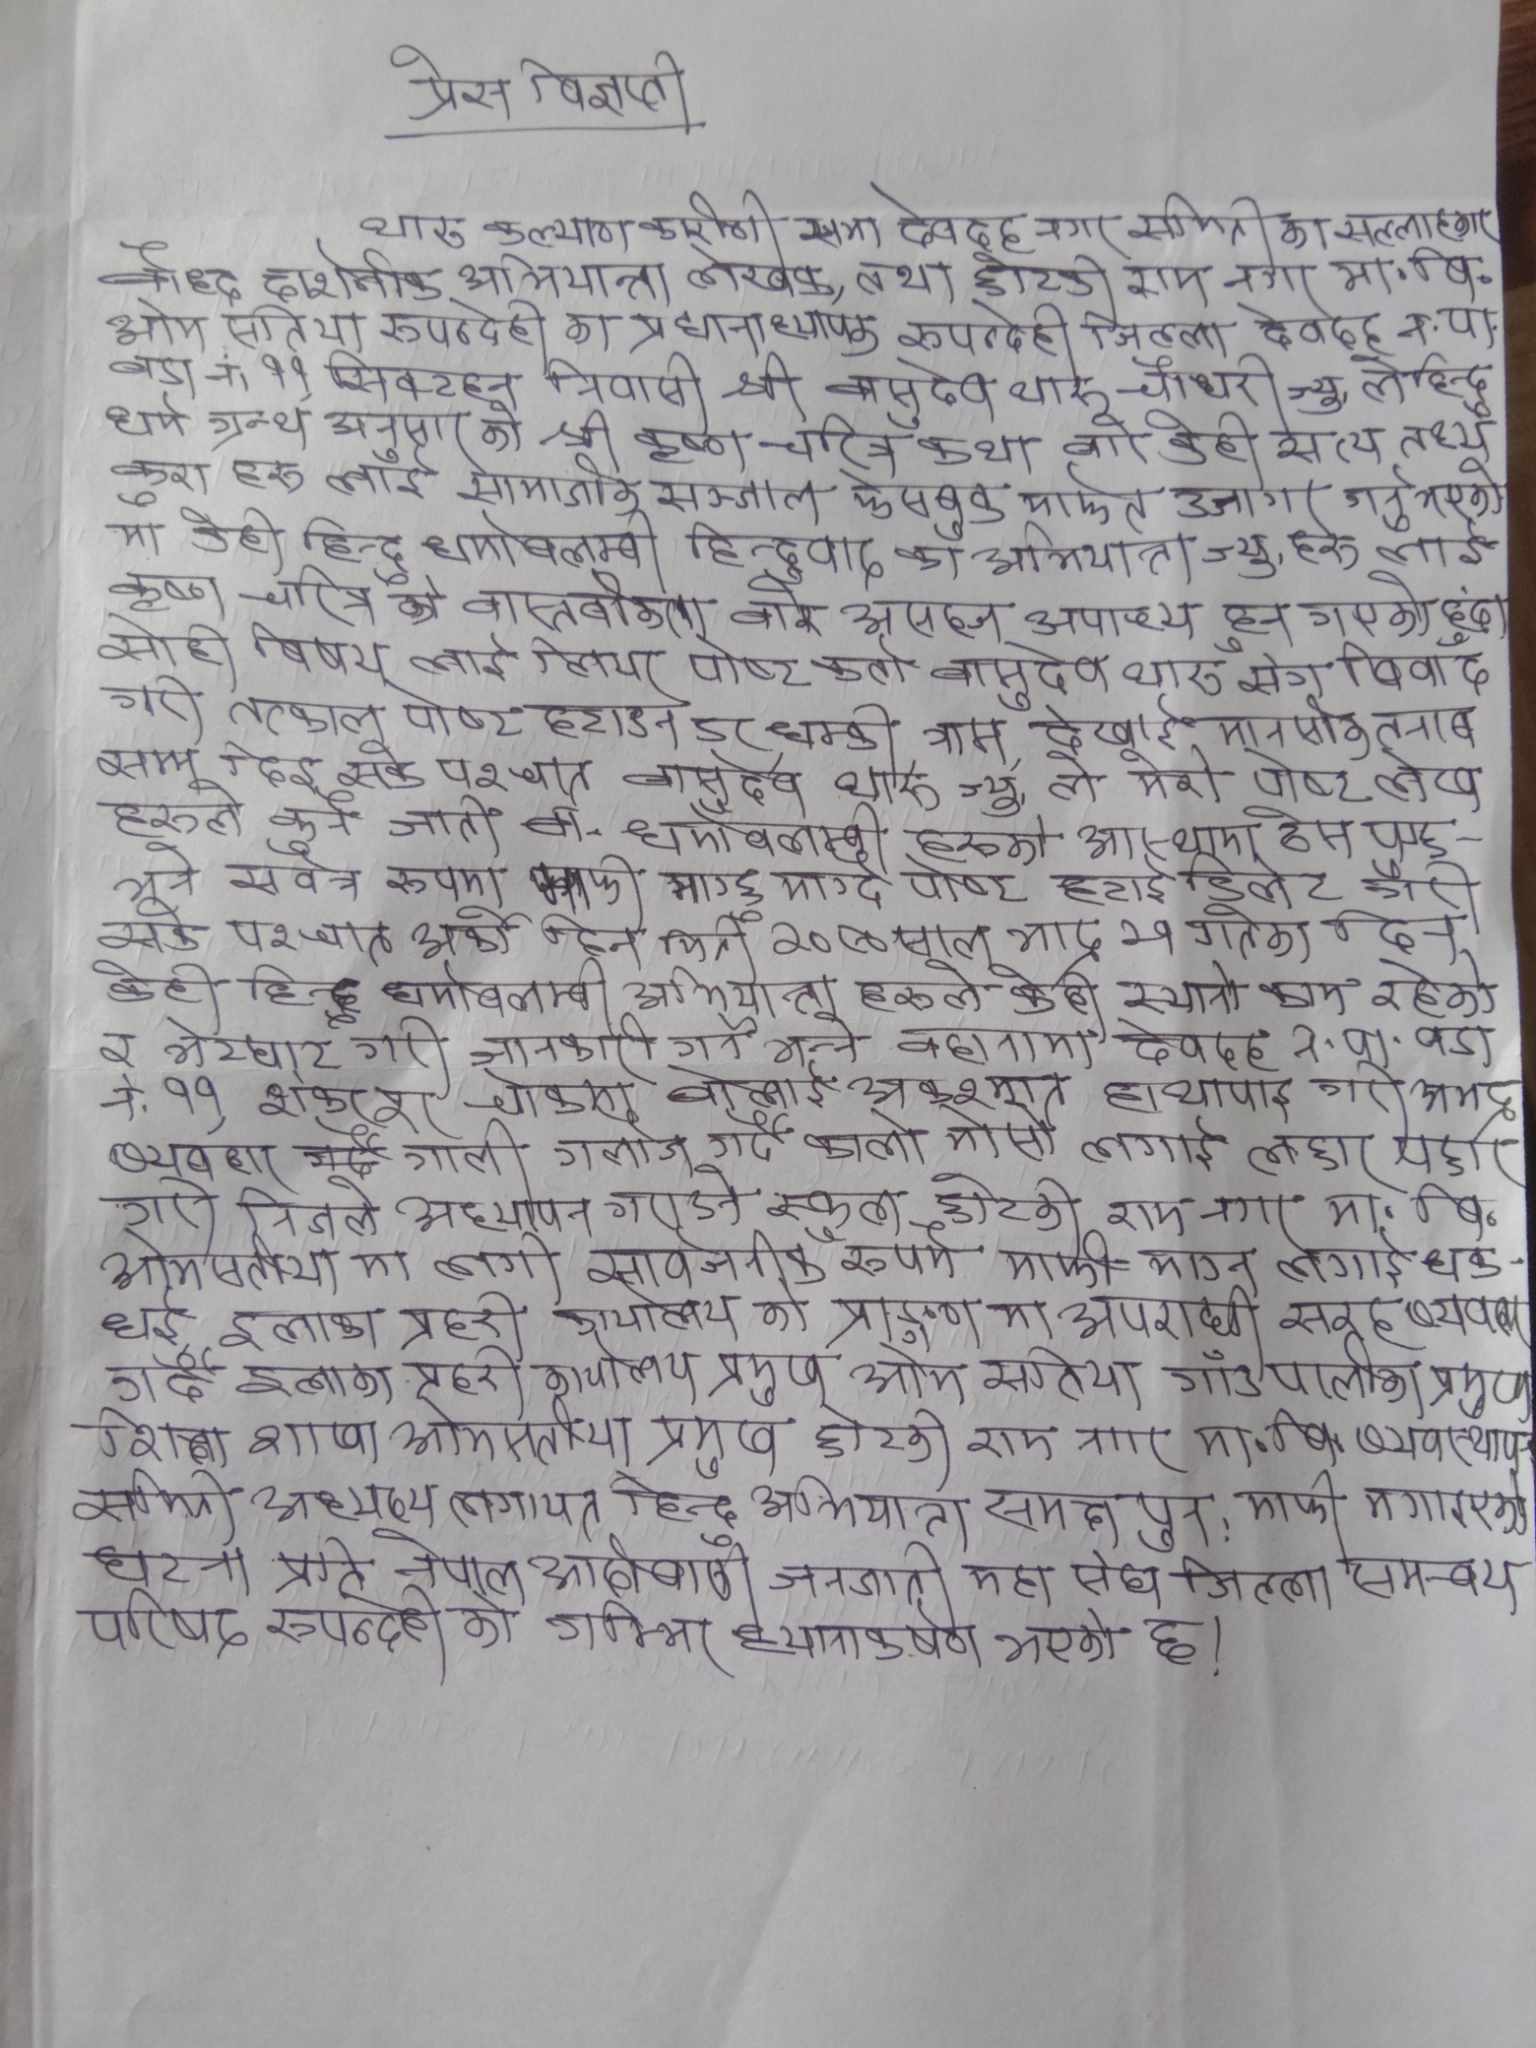 प्रेस विज्ञप्ती
थारु कल्याण कारीणी सभा देवदह नगर समिती का सल्लाहकार
बौद्ध दार्शनीक अभियान्ता लेखक, तथा छोटकी राम नगर मा.बि.
ओम सतिया रुपन्देही का प्रधानाध्यापक रुपन्देही जिल्ला देवदह न.पा.
वडा नं. ११ सिक्टहन निवासी श्री बासुदेव थारु चौधरी ज्यु, ले हिन्दु
धर्म ग्रन्थ अनुसार को श्री कृष्ण चरित्र कथा बारे केही सत्य तथ्य
कुरा हरु लाई सामाजीक सञ्जाल फेसबुक मार्फत उजागर गर्नु भएको
मा केही हिन्दु धर्मावलम्बी हिन्दुवाद का अभियान्ता ज्यु, हरु लाई
कृष्ण चरित्र को वास्तवीकता बारे असहज अपाच्य हुन गएको हुंदा
सोही बिषय लाई लियर पोष्ट कर्ता बासुदेव थारु संग बिवाद
गरी तत्काल पोष्ट हटाउन डर धम्की त्रास देखाई मानसीक तनाब
सम्म दिइ सके पश्चात बासुदेव थारु ज्यु, ले मेरो पोष्ट लेख
हरुले कुनै जाती वा धर्मावलम्बी हरुको आस्थामा ठेस पुग्छ-
भने सर्वत्र रुपमा माफी माग्छु माग्दै पोष्ट हटाई डिलेट गरी
सके पश्चात अर्को दिन मिती २०८०साल भाद्र २१ गतेका दिन
केही हिन्दु धर्मावलम्बी अभियान्ता हरुले केही स्थानो काम रहेको
र भेटघाट गरी जानकारी गर्ने भन्ने बहानामा देवदह न.पा. वडा
नं. ११ शंकरपुर चोकमा बोलाई अकश्मात हाथापाइ गरी अभद्र
व्यबहार गर्दै गाली गलोज गर्दै कालो मोसो लगाई लछार पछार
गरी निजले अध्यापन गराउने स्कुल छोटकी राम नगर मा. बि.
ओमसतीया मा लगी सार्वजनीक रुपमै माफी माग्न लगाई धक-
धई, इलाका प्रहरी कार्यालय को प्राङ्गण मा अपराधी सरह व्यवहार
गर्दै इलाका प्रहरी कार्यालय प्रमुख ओम सतिया गाँउपालीका प्रमुख
शिक्षा शाखा ओमसतीया प्रमुख छोटकी राम नगर मा.बि. व्यवस्थापन
समिती अध्यक्ष्य लगायत हिन्दु अभियान्ता समक्ष पुन: माफी मगाइएको
घटना प्रति नेपाल आदीबासी जनजाती महा संघ जिल्ला समन्वय
परिषद रुपन्देही को गम्भिर ध्यानाकर्षण भएको छ।